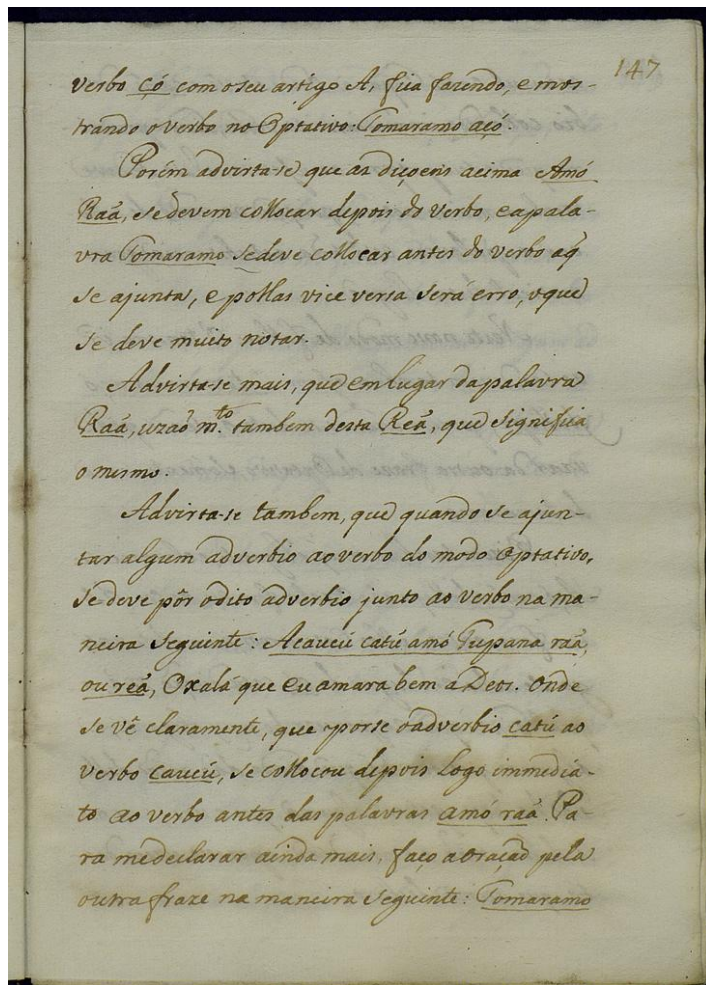 147
verbo çó com o seu artigo A, fica fazendo, e mos-
trando o verbo no Optativo: Tomaramo açó.
Porém advirta-se que as diçoens acima Amó
Raá, se devem collocar depois do verbo, e a pala-
vra Tomaramo se deve collocar antes do verbo aq̃
se ajunta, e pollas vice versa será erro, o que
se deve muito notar.
Advirta-se mais, que em lugar da palavra
Raá, uzaõ m.to tambem desta Reá, que significa
o mesmo.
Advirta-se tambem, que quando se ajun-
tar algum adverbio ao verbo do modo Optativo,
se deve pôr o dito adverbio junto ao verbo na ma-
neira seguinte: Acauçú catú amó Tupana raá,
ou reá, Oxalá que eu amara bem a Deos. Onde
se vê claramente, que por se o adverbio catú ao
verbo cauçú, se collocou depois logo immedia-
to ao verbo antes das palavras amó raá. Pa-
ra me declarar ainda mais, faço a oraçaõ pela
outra fraze na maneira seguinte: Tomaramo